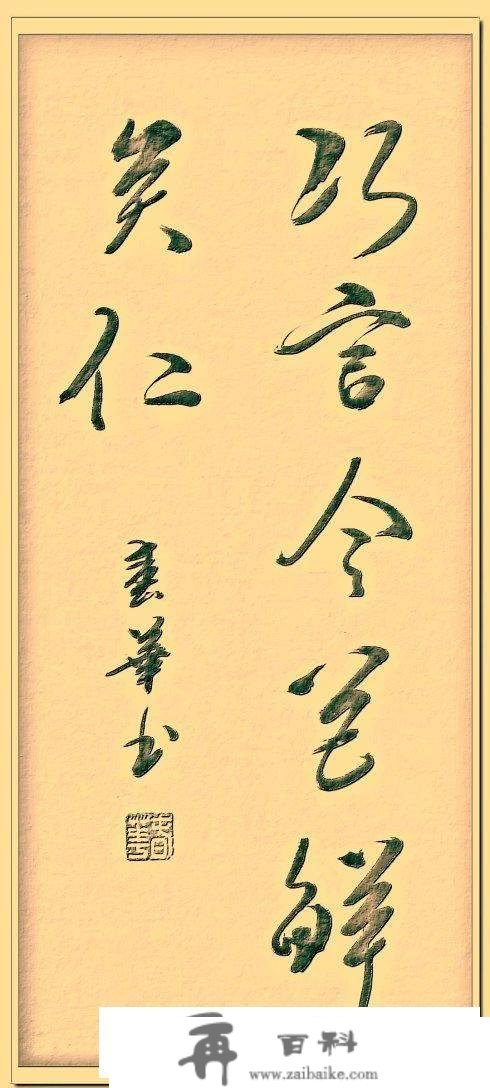 巧言令色鲜
矣仁
春華书
再 百科
www.zaibaike.com